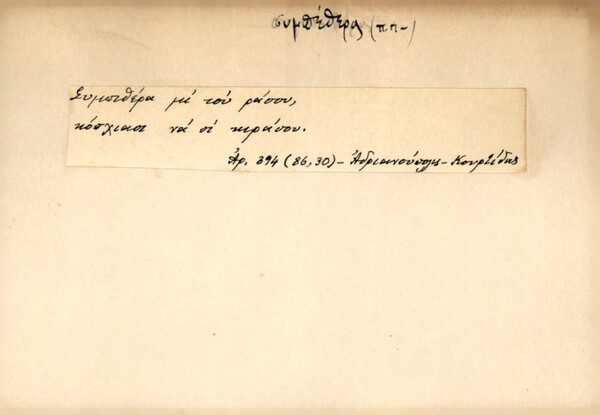 συμπέθερος (πη-)
Συμπιθέρα μὶ τοὺ ράσου,
κόσχιασι νὰ σὶ κιράσου.
Ἀρ. 394 (86,30) - Ἀδριανούπολις - Κουρτίδης